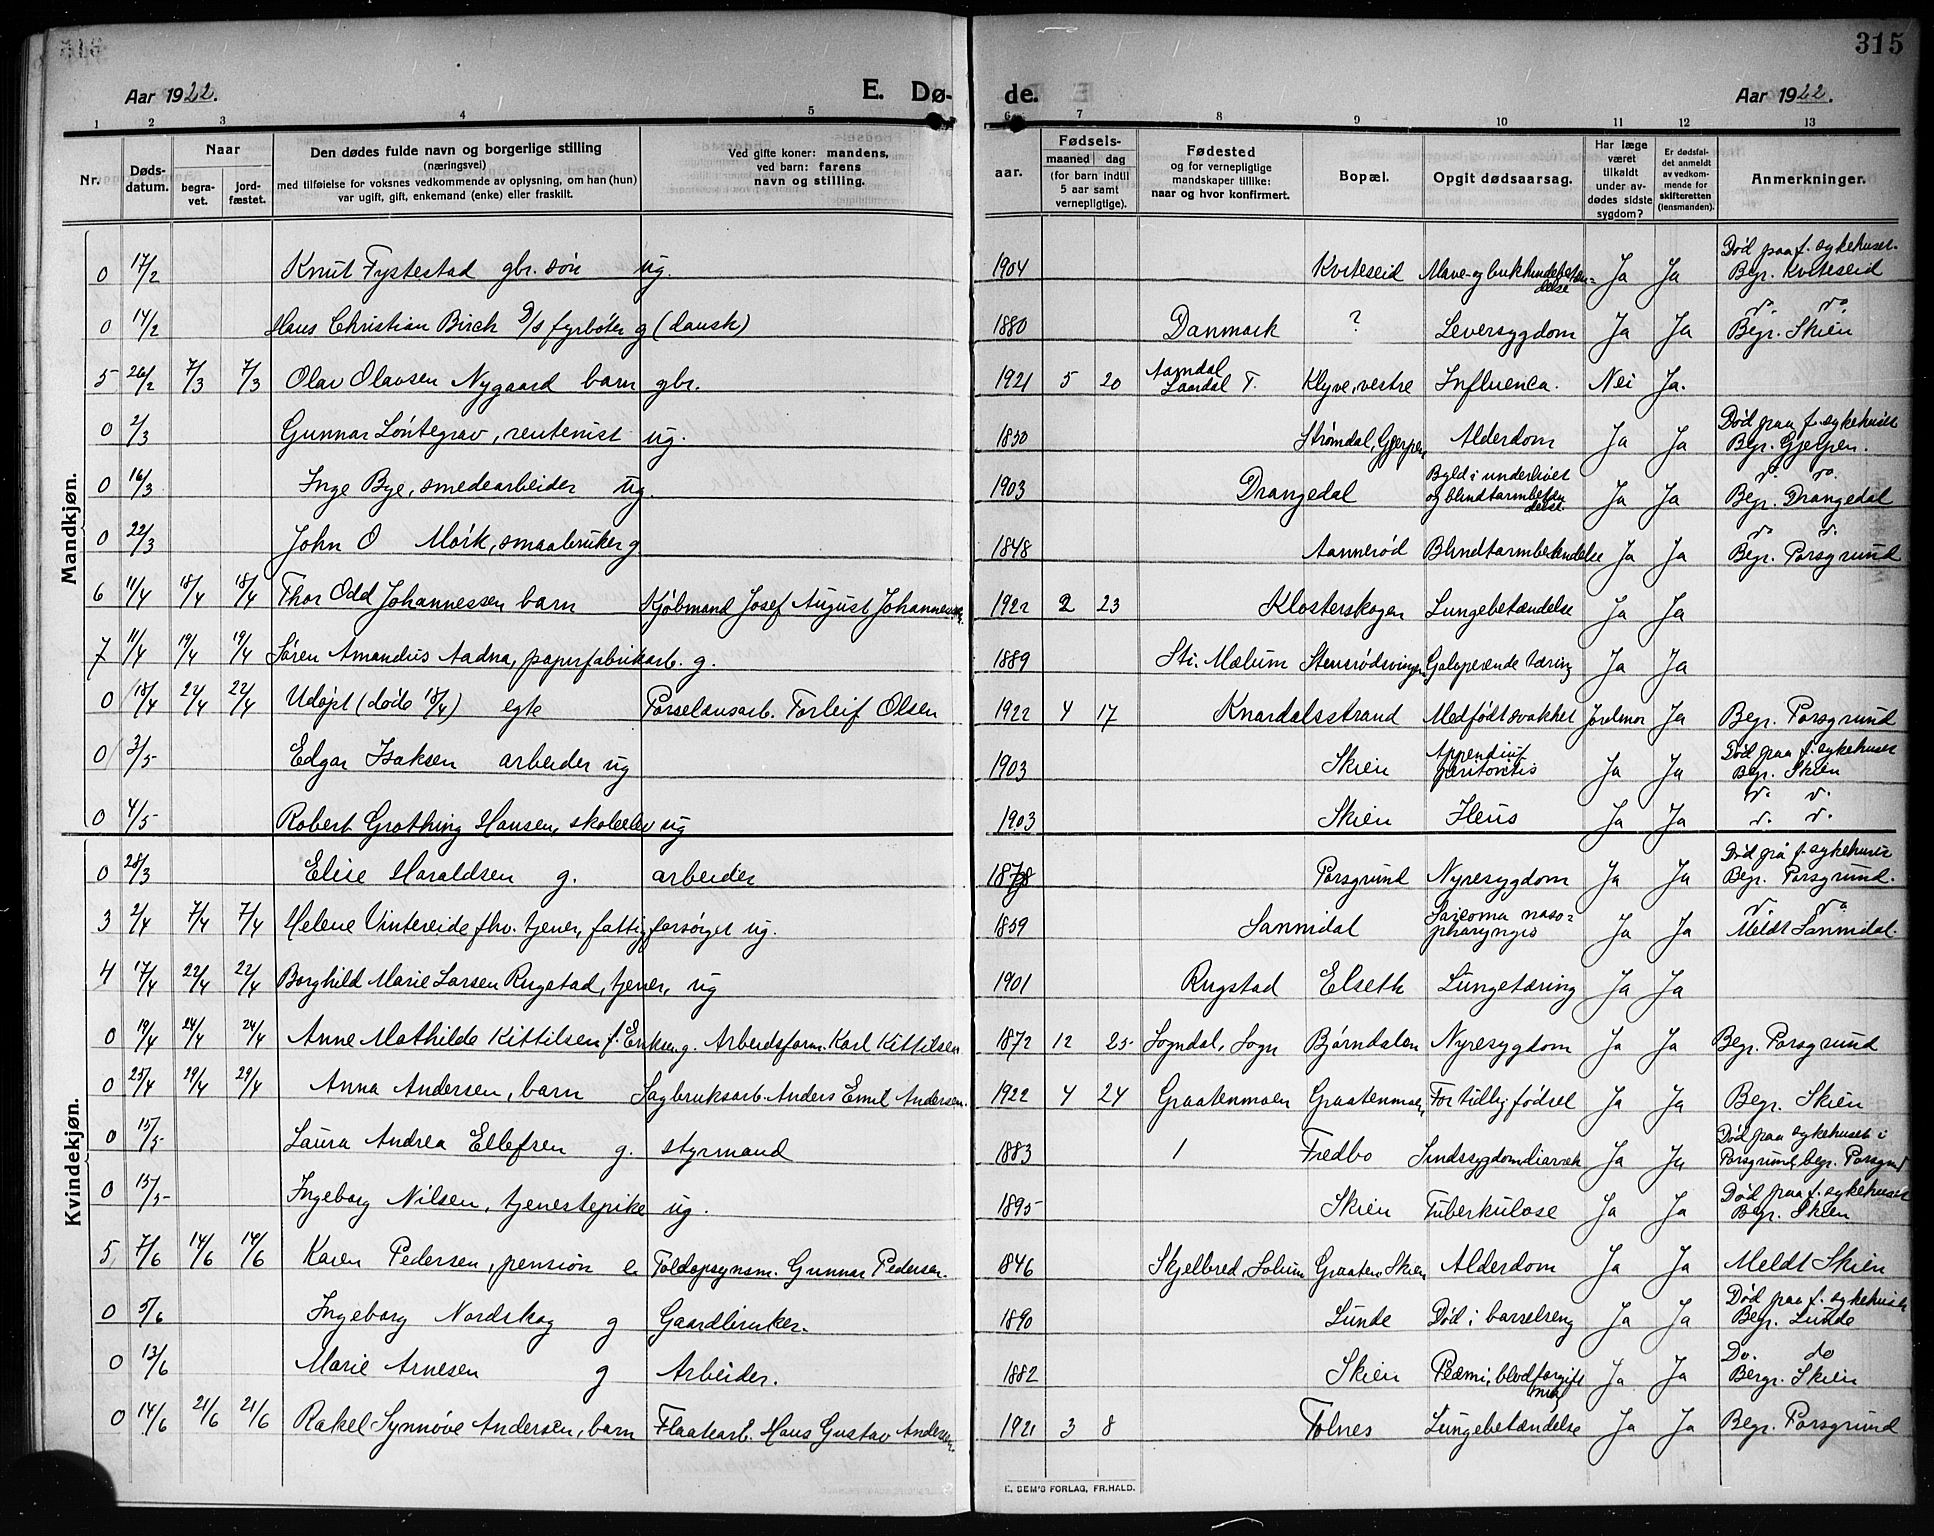 315
Aar 1922. E. Dø- de. Aar 1922.
1 2 3 4 5 6 7 8 9 10 11 12 13
Nr. Døds-datum. Naar begra-vet. jord-fæstet. Den dødes fulde navn og borgerlige stilling (næringsvei) med tilføielse for voksnes vedkommende av oplysning, om han (hun) var ugift, gift, enkemand (enke) eller fraskilt. Ved gifte koner: mandens, ved barn: farens navn og stilling. Fødsels- aar. maaned dag (for barn indtil 5 aar samt vernepligtige). Fødested og for vernepligtige mandskaper tillike: naar og hvor konfirmert. Bopæl. Opgit dødsaarsag. Har læge været tilkaldt under av-dødes sidste sygdom? Er dødsfal-det anmeldt av vedkom-mende for skifteretten (lensmanden). Anmerkninger.
Mandkjøn.
0 17/2 Knut Fystestad gbr. søn ug. 1904 Kviteseid Mave- og bukhindebeten=delse Ja Ja Død paa f. sykehuset. Begr. Kviteseid
0 14/2 Hans Christian Birch D/S fyrbøter g (dansk) 1880 Danmark ? Leversygdom Ja Ja do. do. Begr. Skien
5 26/2 7/3 7/3 Olav Olavsen Nygaard barn gbr. 1921 5 20 Aamdal Laardal T. Klyve, vestre Influenca. Nei Ja.
0 2/3 Gunnar Løntegrav, rentenist ug. 1830 Strømdal, Gjerpen Alderdom Ja Ja Død paa f. sykehuset Begr. Gjerpen.
0 16/3 Inge Bye, smedearbeider ug. 1903 Drangedal Byld i underlivet og blindtarmbeten delse Ja Ja do. do. Begr. Drangedal
0 22/3 John O Mørk, smaabruker g 1848 Aannerød Blindtarmbetendelse Ja Ja do. do. Begr. Porsgrund
6 11/4 18/4 18/4 Thor Odd Johannessen barn Kjøbmand Josef August Johannessen. 1922 2 23 Klosterskogen Lungebetændelse Ja Ja
7 11/4 19/4 19/4 Søren Amandus Aadna, papirfabrikarb. g. 1889 St. Mælum Stensrødsvingen Galoperende tæring Ja Ja
0 (18/4 22/4 22/4 Udøpt (døde 18/4) egte Porselansarb. Torleif Olsen 1922 4 17 Knardalsstrand Medfødt svakhet Jordmor Ja Begr. Porsgrund
0 3/5 Edgar Isaksen arbeider ug 1903 Skien Appendicit peritonitis Ja Ja Død paa f. sykehuset Begr. Skien
0 4/5 Robert Grothing Hansen, skoleelev ug 1903 Skien Ileus Ja Ja do. do. do. do.
Kvindekjøn.
0 28/3 Elise Haraldsen g. arbeider 1878 Porsgrund Nyresygdom Ja Ja Død på f. sykehuset Begr. Porsgrund.
3 2/4 7/4 7/4 Helene Vintereide fhv. tjener, fattigforsørget ug. 1859 Sannidal Sarcoma naso=pharyngis Ja Ja do. do Meldt Sannidal.
4 17/4 22/4 22/4 Borghild Marie Larsen Rugstad, tjener, ug 1901 Rugstad Elseth Lungetæring Ja Ja
0 19/4 24/4 24/4 Anne Mathilde Kittilsen f. Eriksen g. Arbeidsform. Karl Kittilsen 1872 12 25 Sogndal, Sogn Bjørndalen Nyresygdom Ja Ja Begr. Porsgrund
0 25/4 29/4 29/4 Anna Andersen, barn Sagbruksarb. Anders Emil Andersen. 1922 4 24 Graatenmoen Graatenmoen For tidlig fødsel Ja Ja Begr. Skien
0 15/5 Laura Andrea Ellefsen g. styrmand 1883 Fredbo Sindssygdom diarræ Ja Ja Død paa sykehuset i Porsgrund, begr. Porsgrund
0 15/5 Ingeborg Nilsen, tjenestepike ug. 1895 Skien Tuberkulose Ja Ja Død paa f. sykehuset Begr. Skien
5, 7/6 14/6 14/6 Karen Pedersen, pension e Toldopsynsm. Gunnar Pedersen. 1846 Skjelbred, Solum Graaten, Skien Alderdom Ja Ja Meldt Skien
0 5/6 Ingeborg Nordskog g Gaardbruker. 1890 Lunde Død i barselseng Ja Ja Død paa f. sykehuset Begr. Lunde
0 13/6 Marie Arnesen g Arbeider. 1882 Skien blodforgift Ja Ja Do. do Begr. Skien
0 14/6 21/6 21/6 Rakel Synnøve Andersen, barn Flaatearb. Hans Gustav Andersen. 1921 3 8 Tolnes Lungebetændelse Ja Ja Begr. Porsgrund
E. SEM'S FORLAG, FR.HALD.